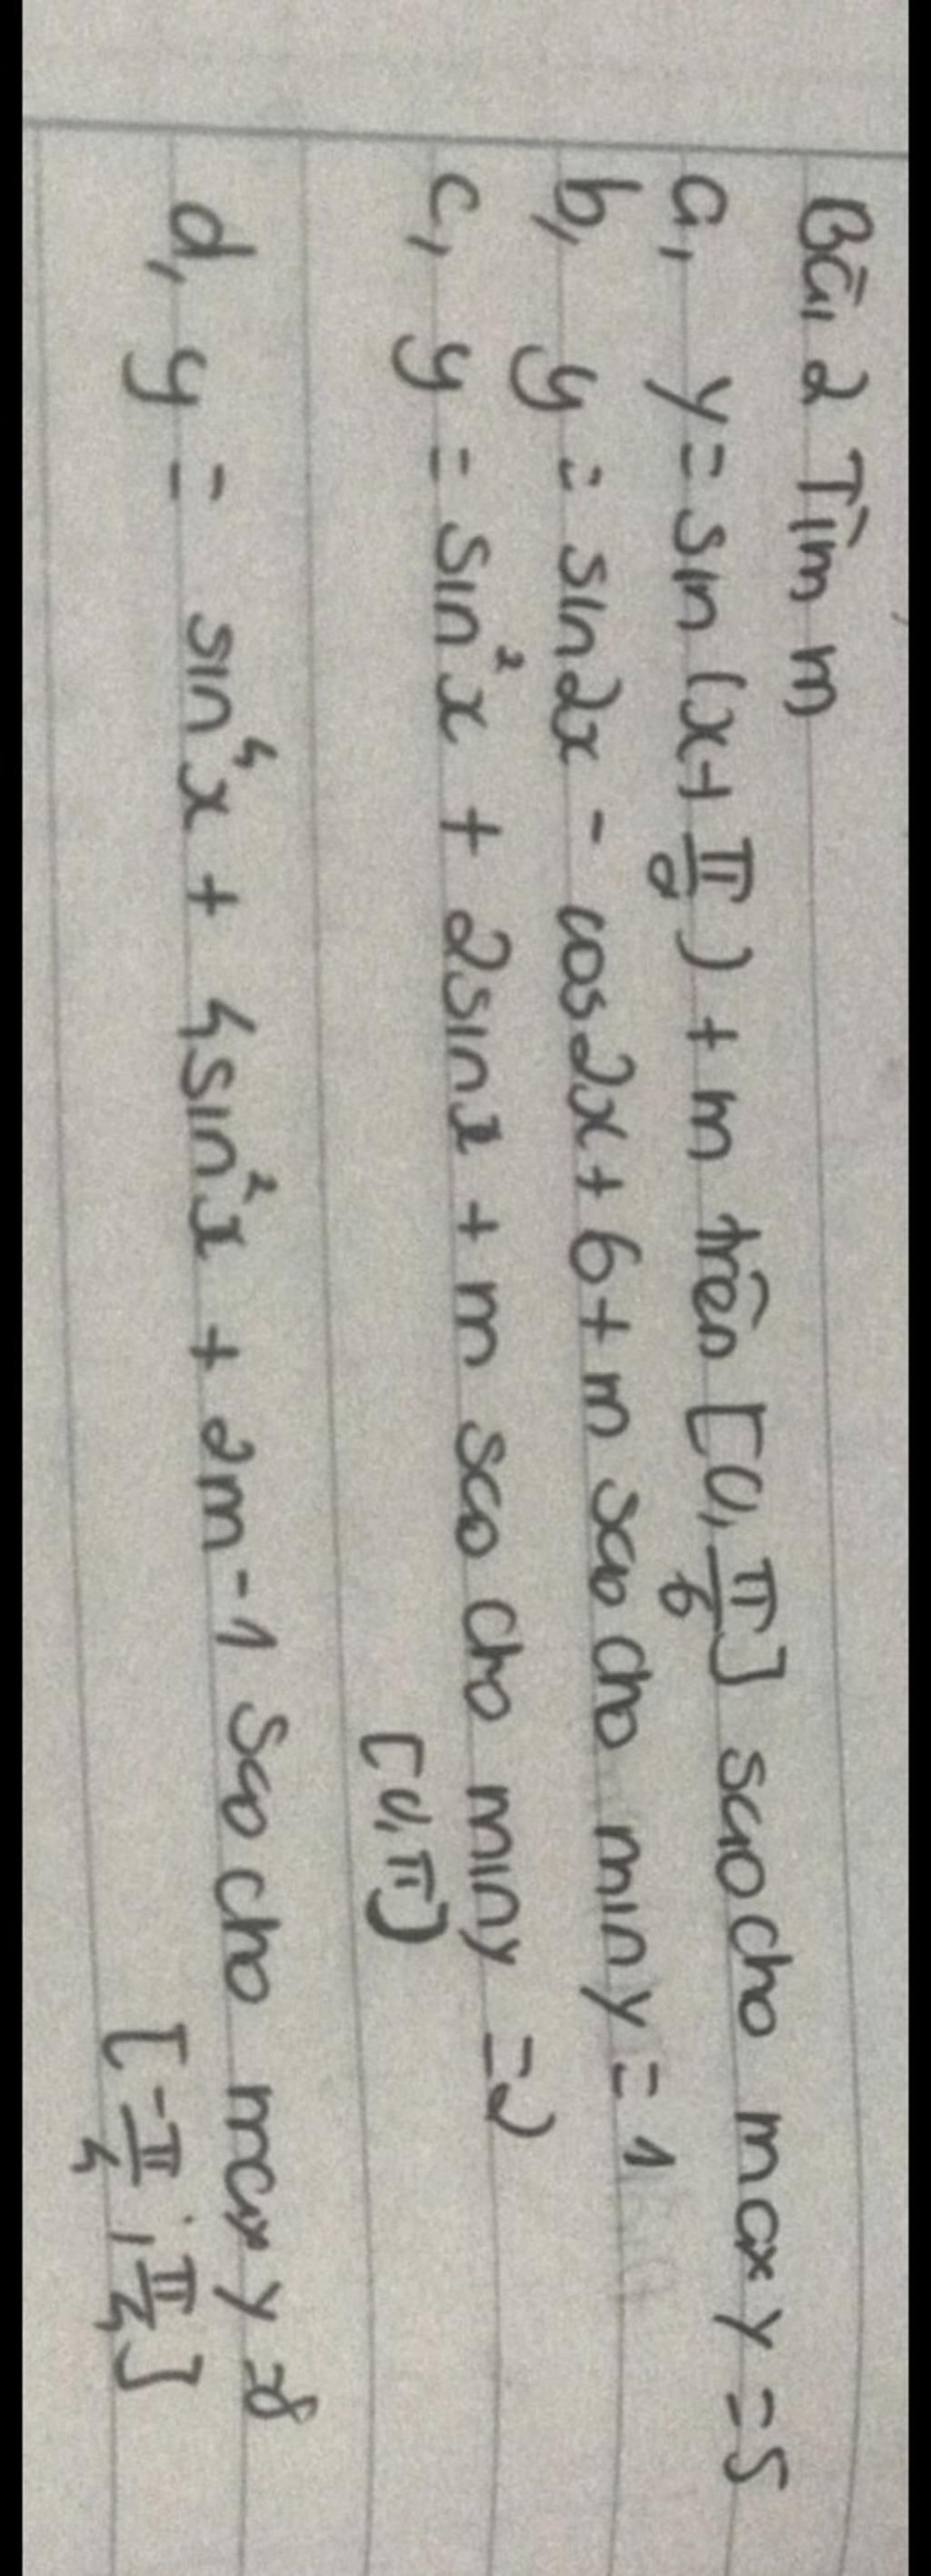 Bài 2 Tìm m
a, y = sin(x + π/2) + m trên [0, π/6] sao cho max y = 5
b, y = sin2x - cos2x + 6 + m sao cho min y = 1
c, y = sin²x + 2sinx + m sao cho min y = 2
[0, π]
d, y = sin⁴x + 4sin²x + 2m - 1 sao cho max y = 8
[-π/4; π/4]